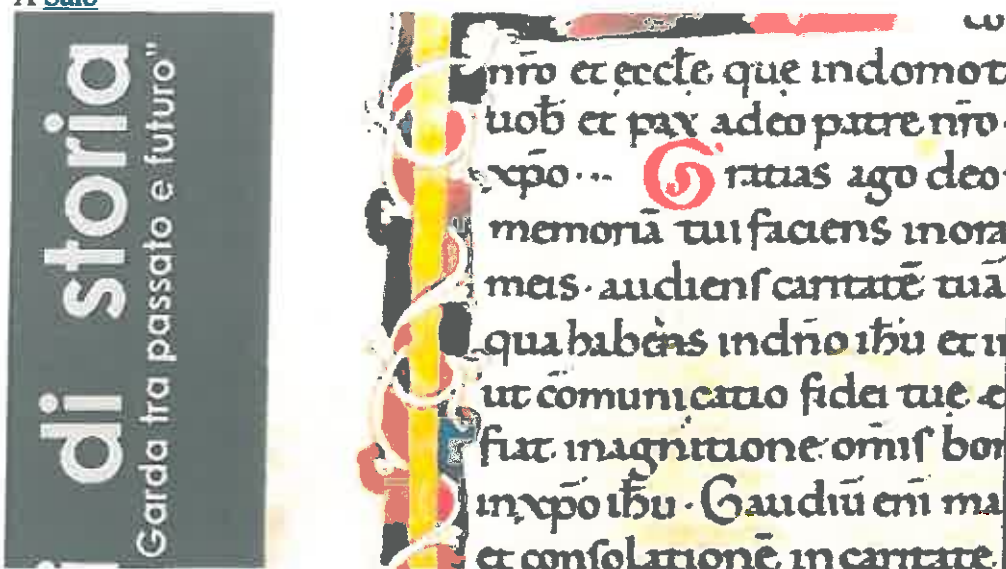 A Salò
di storia
Garda tra passato e futuro"
nr̄o et eccłe que indomot
uob̄ et pax adeo patre nr̄o·
xp̄o··· Gratias ago deo·
memoriā tui faciens inora
meis· audienſ caritatē tuā
qua habens indn̄o ih̄u et in
ut comunicatio fidei tue e
fiat inagnitione omiſ bon
in xp̄o ih̄u· Gaudiū eni ma
et conſolationē in caritate